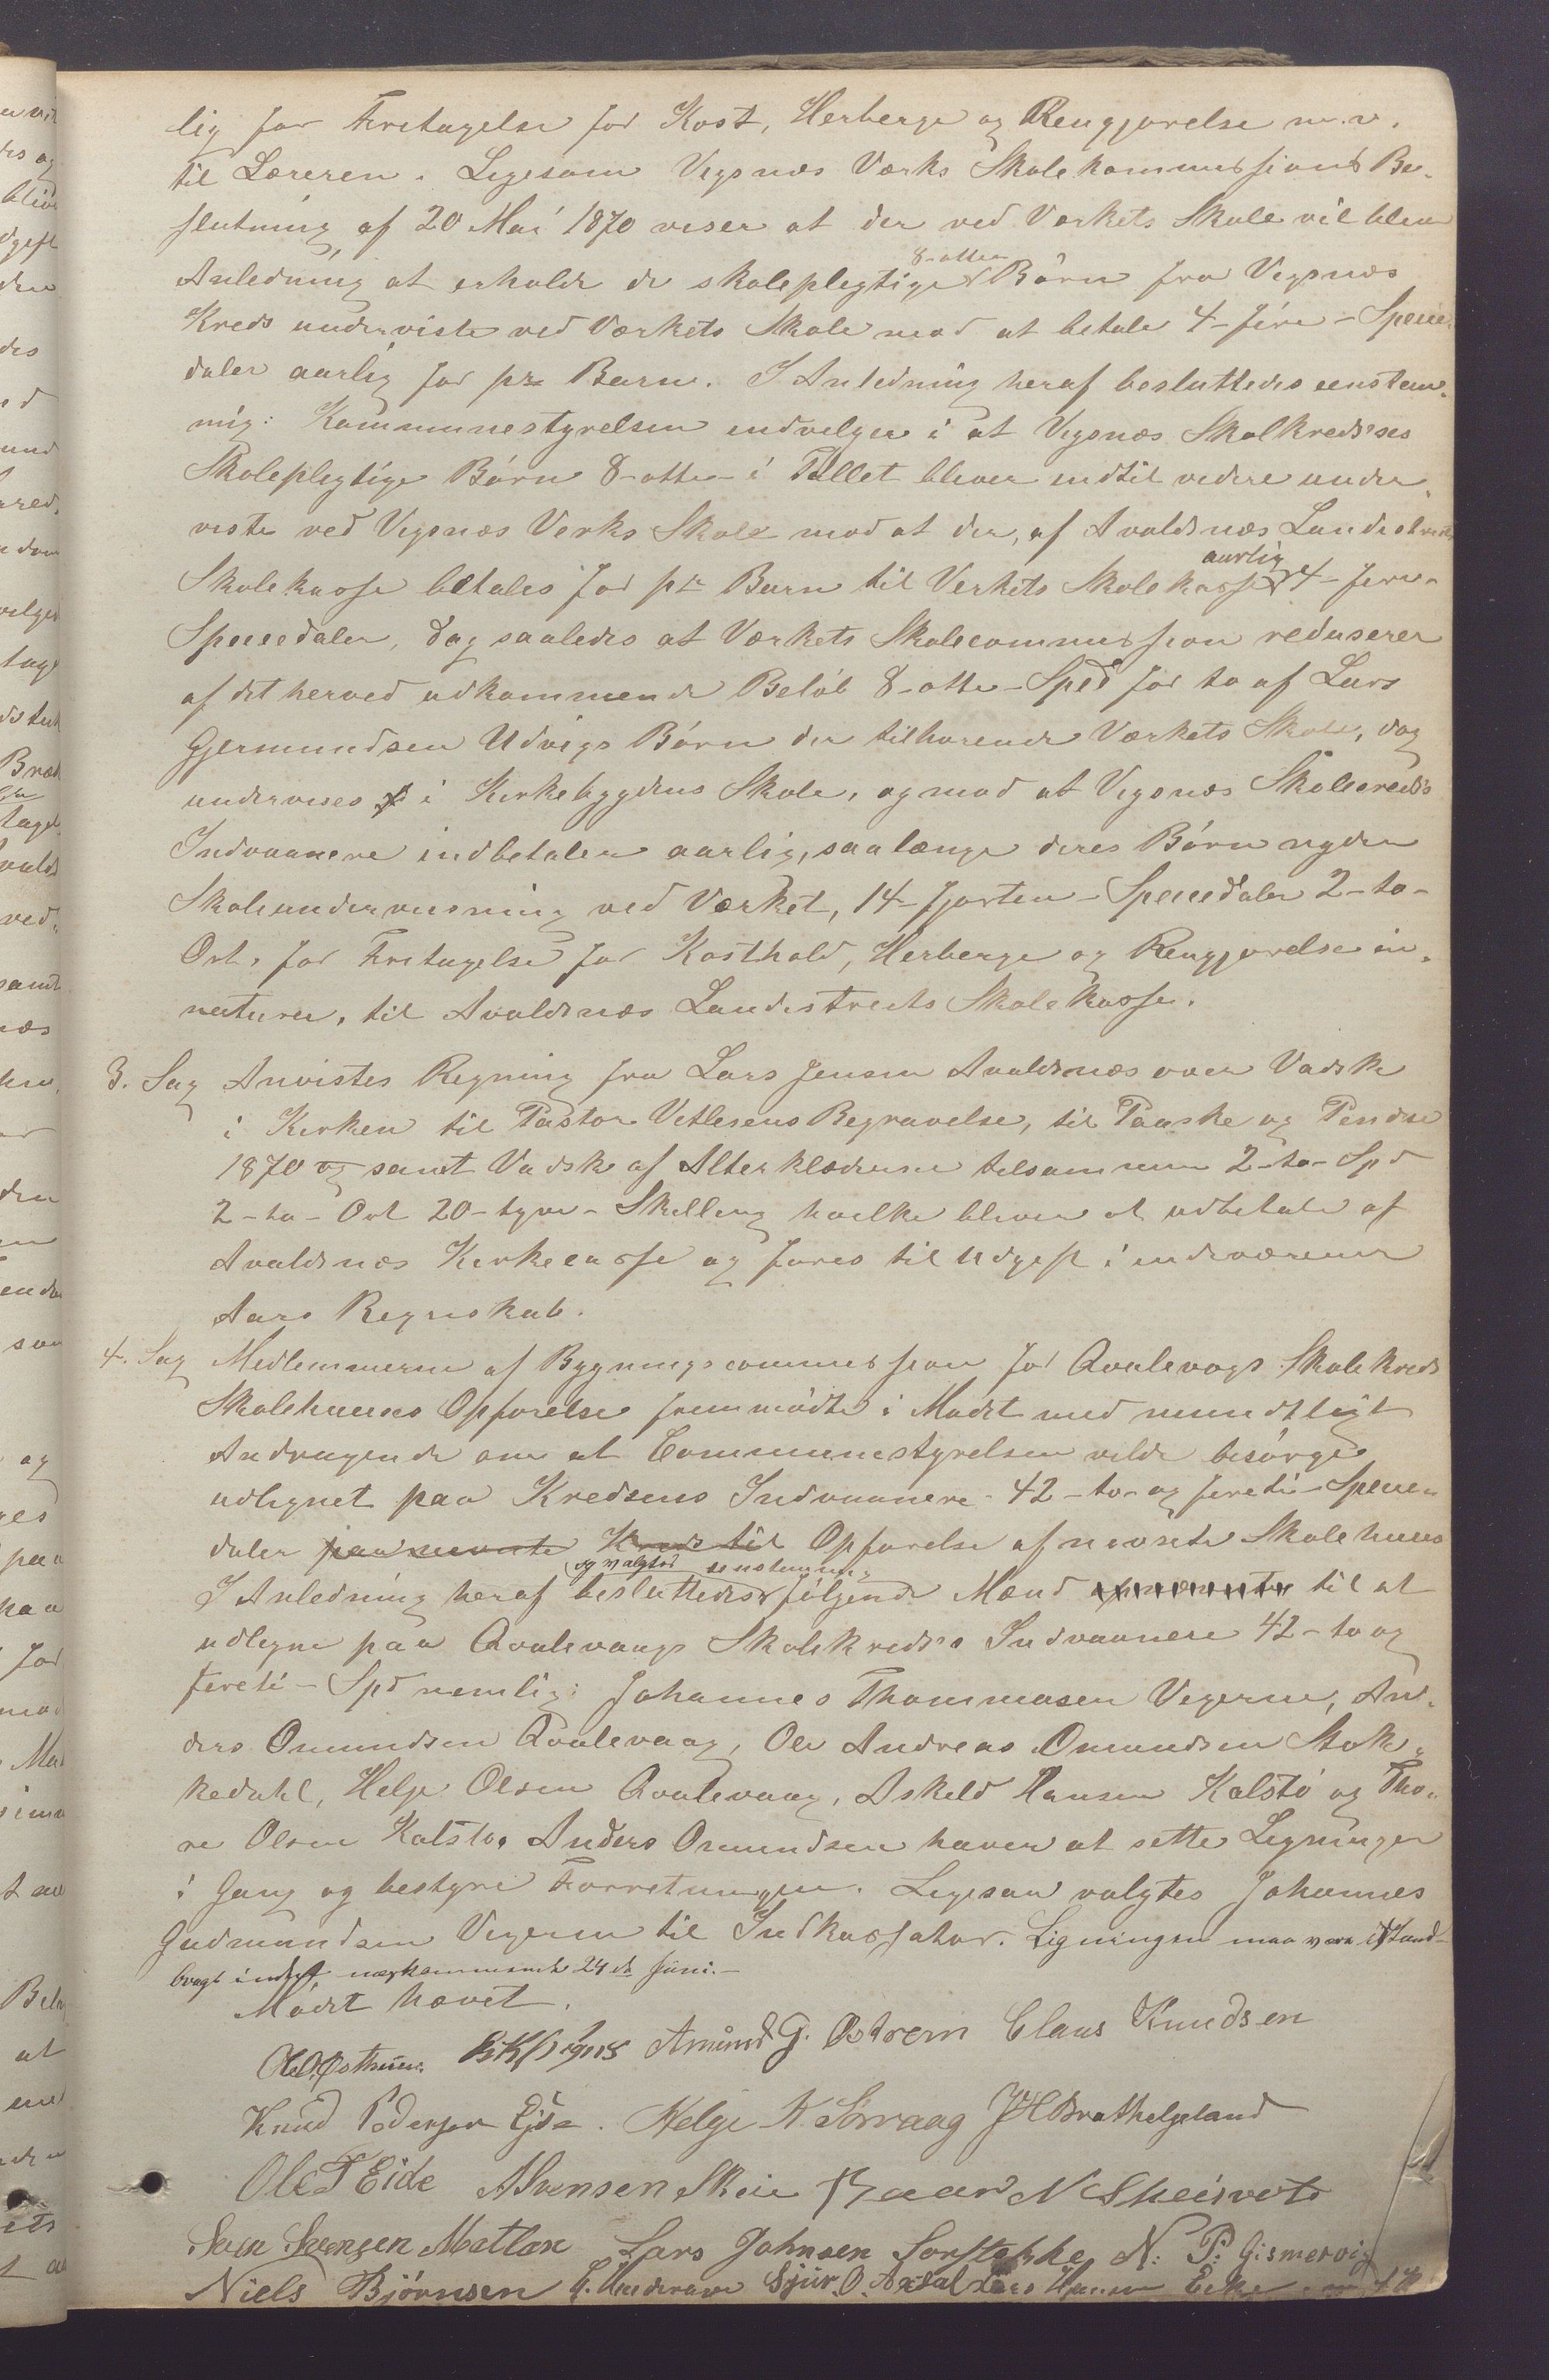 lig for Fritagelse for Kost, Herberge og Rengjørelse m.v.
til Læreren. Ligesom Vigsnæs Værks Skolekommissions Be-
slutning af 20 Mai 1870 viser at der ved Værkets Skole vil blive
Anledning at erholde de skolepligtige 8-otte Børn fra Vigsnæs
Kreds underviste ved Værkets Skole mod at betale 4-fire-Specie-
daler aarlig for pr Barn. I Anledning heraf besluttedes eenstem-
mig: Kommunestyrelsen indvilger i at Vigsnæs Skolkredses
Skolepligtige Børn 8-otte- i Tallet bliver indtil videre under-
viste ved Vigsnæs Verks Skole mod at der, af Avaldsnæs Landistrikts
Skolekasse betales for pr Barn til Verkets Skolekasse aarlig 4-fire-
Speciedaler, dog saaledes at Værkets Skolecommission reduserer
af det herved udkommende Beløb 8-otte-Spd for to af Lars
Gjermundsen Udvigs Børn der tilhørende Værkets Skole, dog
undervises i Kirkebygdens Skole, og mod at Vigsnæs Skolecreds's
Indvaanere indbetaler aarlig, saalænge deres Børn nyder
Skoleundervisning ved Værket, 14-fjorten-Speciedaler 2-to-
Ort, for Fritagelse for Kosthold, Herberge og Rengjørelse in-
natura, til Avaldsnæs Landistrikts Skolekasse.
3. Sag Anvistes Regning fra Lars Jensen Avaldsnæs over Vadsk
i Kirken til Pastor Vetlesens Begravelse, til Paaske og Pendse
1870 og samt Vadsk af Alterklæderne tilsammen 2-to-Spd
2-to-Ort 20-tyve-Skilling hvilke bliver at udbetale af
Avaldsnæs Kirkecasse og føres til Udgift i indeværende
Aars Regnskab.
4. Sag Medlemmerne af Bygningscommission for Qvalevogs Skolekreds
Skolehuuses Opførelse fremmødte i Mødet med mundtligt
Andragende om at Communestyrelsen vilde besørge
udlignet paa Kredsens Indvaanere 42-to og fireti-Specie-
daler paa nævnte Kreds til Opførelse af nævnte Skolehuus
I Anledning heraf besluttedes og valgtes eenstemmig følgende Mænd til at
udligne paa Qvalevaags Skolekreds's Indvaanere 42-to og
fireti-Spd nemlig: Johannes Thommasen Vegerne, An-
ders Omundsen Qvalevaag, Ole Andreas Omundsen Stok-
kedahl, Helge Olsen Qvalevaag, Askeld Hansen Kalstø og Tho-
re Olsen Kalstø. Anders Omundsen haver at sette Ligningen
i Gang og bestyre Forretningen. Ligesaa valgtes Johannes
Gudmundsen Vegerne til Indkassator. Ligningen maa være istand-
bragt inden næstkommende 24de Juni.-
Mødet hævet.
Ole O. Østhuus. Amund G. Østrem Claus Knudsen
Knud Pedersen Eide. Helge K Sørvaag JHBrathelgeland
Ole T Eide ASvensen Skeie Baard N Skeisvold
Sven Svensen Matland Lars Johnsen Sørstokke N: P: Gismervig
Niels Bjørnsen Sjur. O. Axdal Lars Hansen Eike